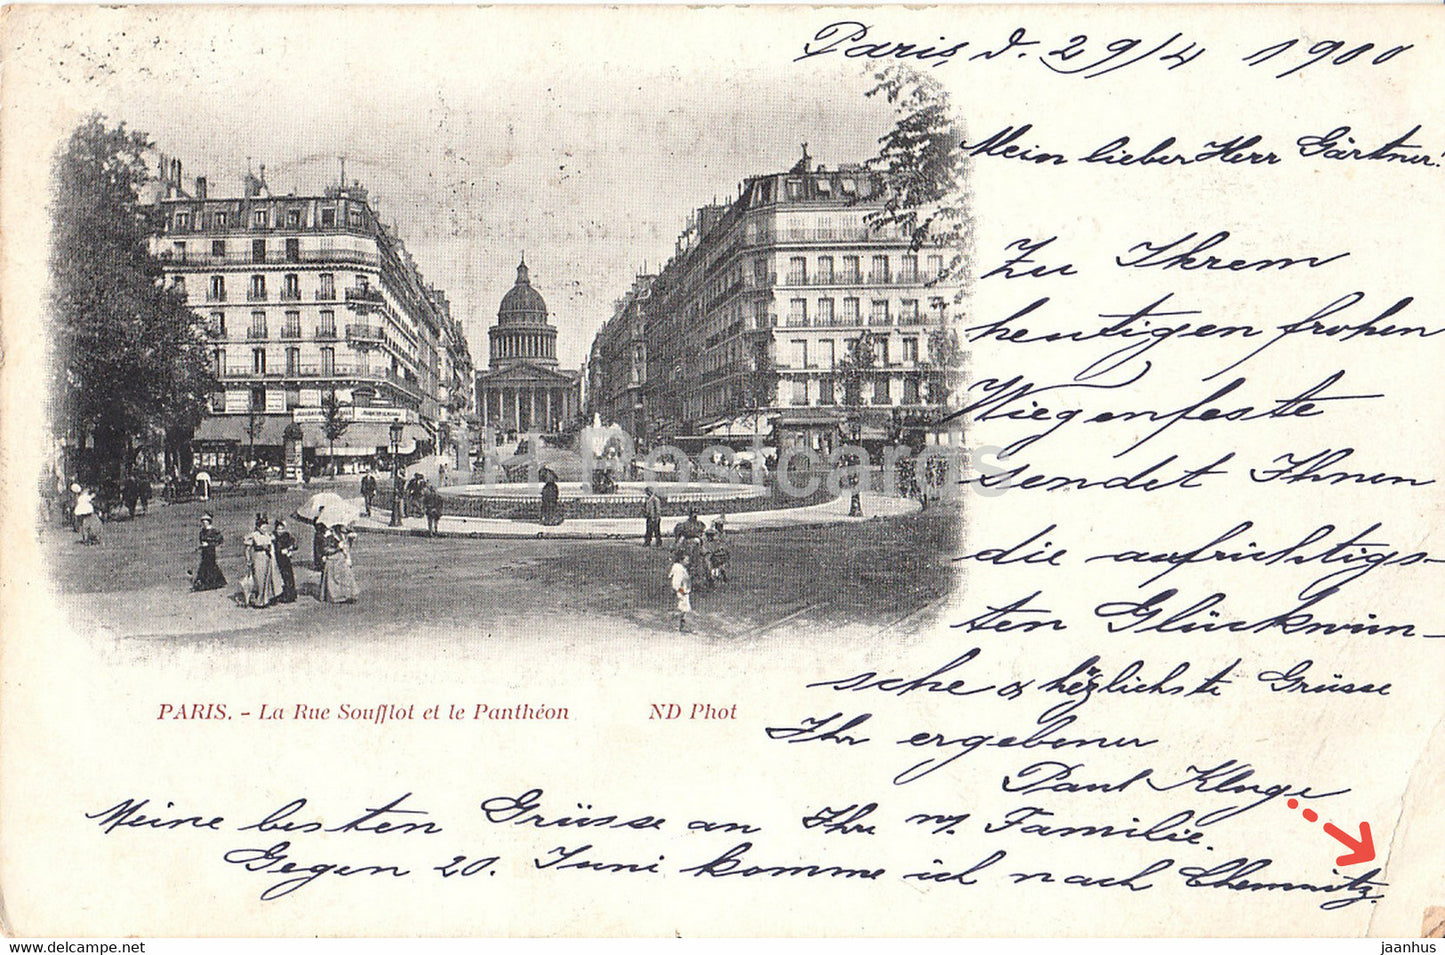 Paris, d. 29/4 1900
Mein lieber Herr Gärtner!
Zu Ihrem
heutigen frohen
Wiegenfeste
sendet Ihnen
die aufrichtigs-
ten Glückwün-
sche & herzlichste Grüsse
Ihr ergebener
Paul Kluge
Meine besten Grüsse an Ihre w. Familie.
Gegen 20. Juni komme ich nach Chemnitz.
PARIS. - La Rue Soufflot et le Panthéon ND Phot
JH Postcards
jaanhus